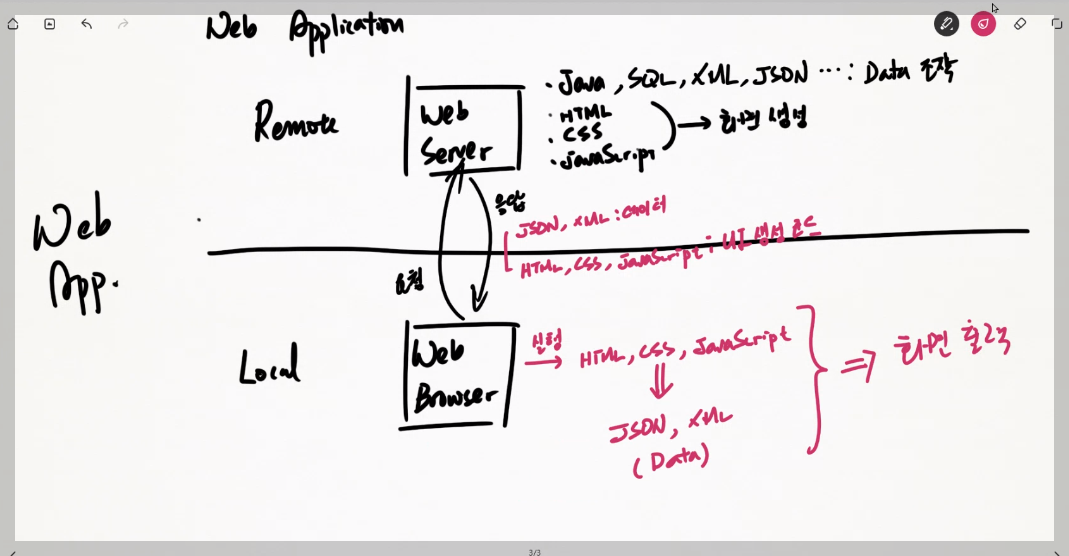 Web Application
Remote
Web
Server
· Java, SQL, XML, JSON ··· : Data 조작
· HTML
· CSS
· JavaScript
→ 화면 생성
Web
App.
응답
JSON, XML : 데이터
HTML, CSS, JavaScript : UI 생성 코드
요청
Local
Web
Browser
실행
→ HTML, CSS, JavaScript
⇒ 화면 출력
JSON, XML
(Data)
3/3